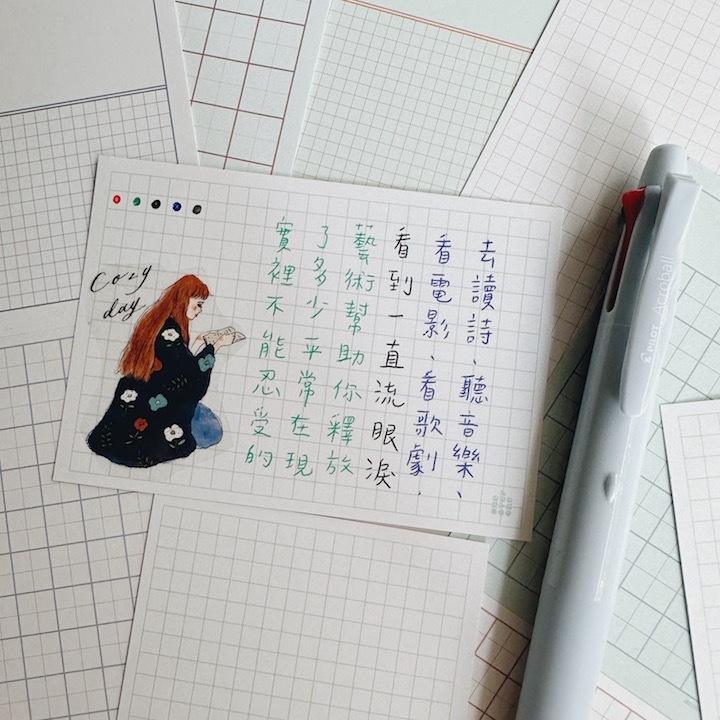 去讀詩、聽音樂、
看電影、看歌劇、
看到一直流眼淚
藝術幫助你釋放
了多少平常在現
實裡不能忍受的
Cozy
day
Acroball